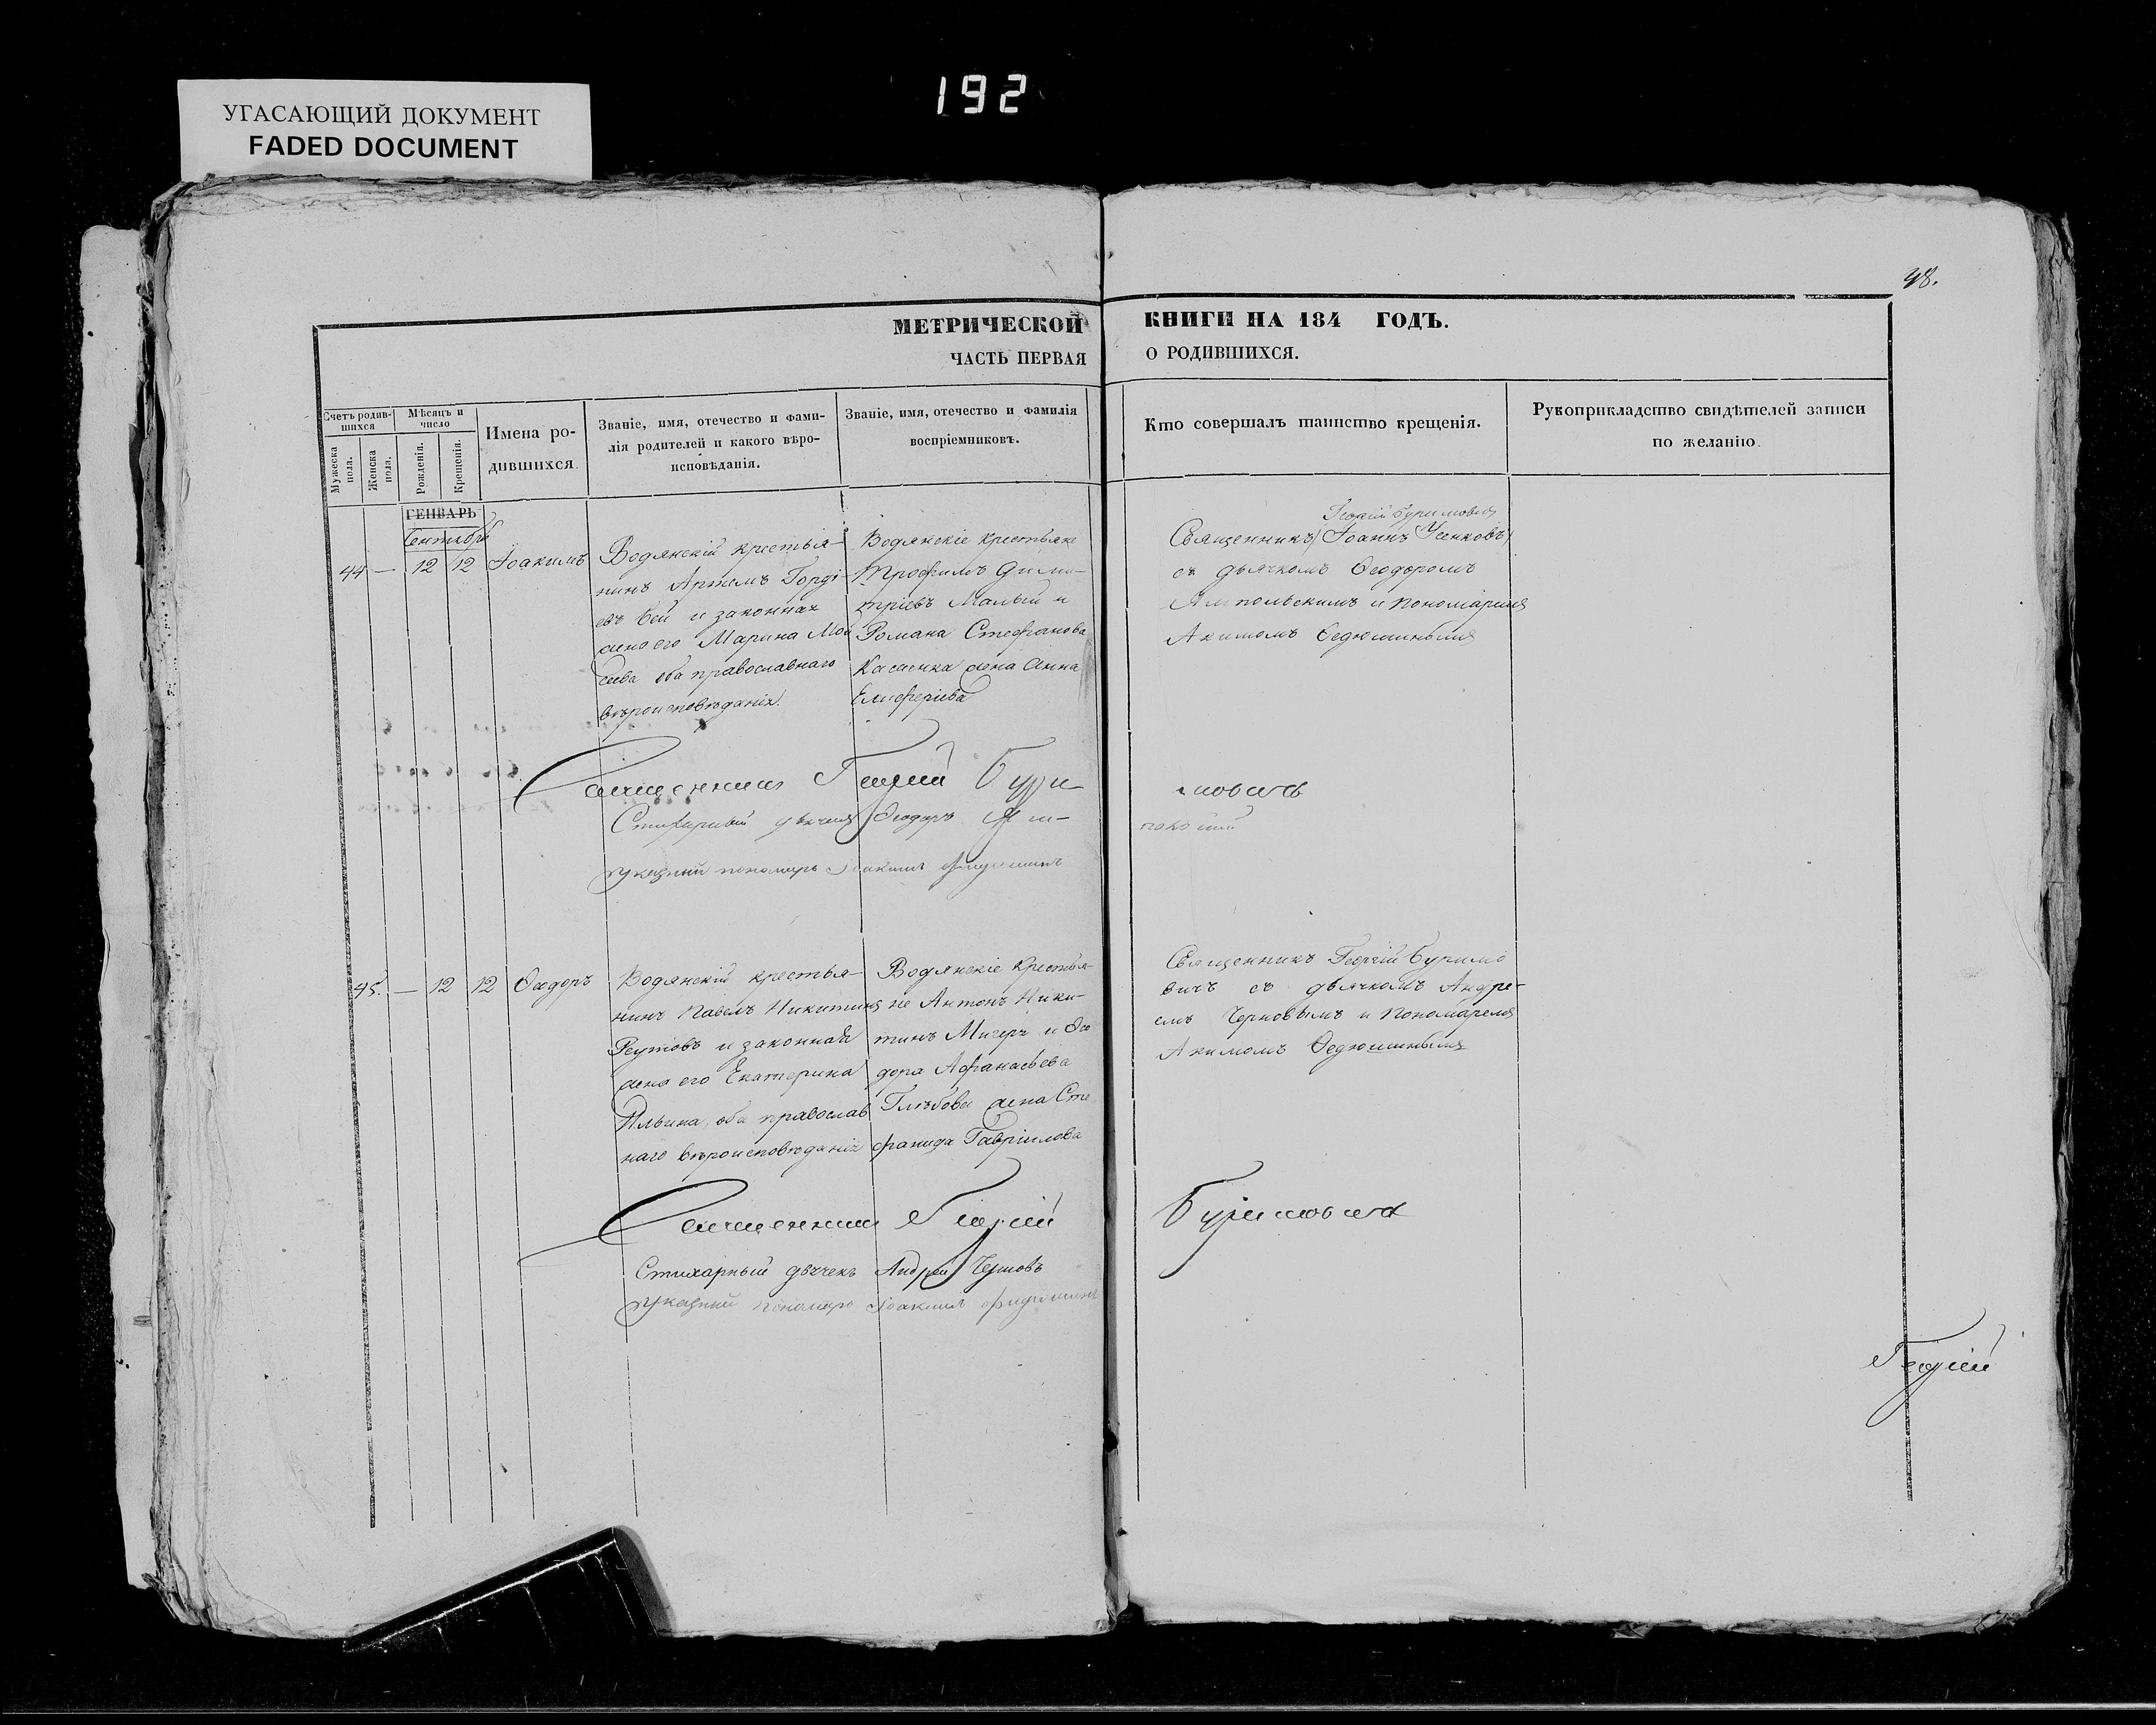 192
УГАСАЮЩИЙ ДОКУМЕНТ
FADED DOCUMENT
98.
МЕТРИЧЕСКОЙ КНИГИ НА 184 ГОДЪ.
ЧАСТЬ ПЕРВАЯ О РОДИВШИХСЯ.
Счетъ родив-
шихся
Мужеска пола.
Женска пола.
Мѣсяцъ и
число
Рожденія.
Крещенія.
Имена ро-
дившихся.
Званіе, имя, отечество и фами-
лія родителей и какого вѣро-
исповѣданія.
Званіе, имя, отечество и фамилія
воспріемниковъ.
Кто совершалъ таинство крещенія.
Рукоприкладство свидѣтелей записи
по желанію.
ГЕНВАРЬ
Сентябрь
44 — 12 12 Іоакимъ
Водянскій крестья-
нинъ Артемъ Горді-
евъ Вей и законная
жена его Марина Мои
сеева оба православнаго
вѣроисповѣданія.
Водянскіе крестьяне
Трофимъ Дими-
тріевъ Малый и
Романа Стефанова
жена Анна
Елисферіева
Георгій Буримовичъ
Священникъ (Іоаннъ Усенковъ)
съ дьячкомъ Ѳеодоромъ
Ямпольскимъ и пономаремъ
Акимомъ Ѳедюшинымъ
Священникъ Георгій Бури-
мовичъ
Стихарный дьячекъ Ѳеодоръ Ям-
польскій
Указный пономарь Іоакимъ Федюшинъ
45. — 12 12 Ѳеодоръ
Водянскій крестья-
нинъ Павелъ Никитинъ
Реутовъ и законная
жена его Екатерина
Ильина, оба православ
наго вѣроисповѣданія
Водянскіе крестья-
не Антонъ Ники-
тинъ и Ѳео
дора Афанасьева
Глѣбова жена Сте
фанида Гавріилова
Священникъ Георгій Буримо
вичъ съ дьячкомъ Андре-
емъ Черновымъ и пономаремъ
Акимомъ Ѳедюшинымъ
Священникъ Георгій Буримовичъ
Стихарный дьячекъ Андрей Черновъ
Указный пономарь Іоакимъ Федюшинъ
Георгій